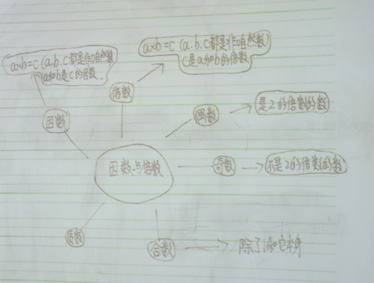 a×b=c (a.b.c都是非0自然数)
a和b是c的因数.
a×b=c (a.b.c都是非0自然数)
c是a和b的倍数
因数
倍数
偶数
是2的倍数的数
因数与倍数
奇数
不是2的倍数的数
质数
合数
除了1和它本身